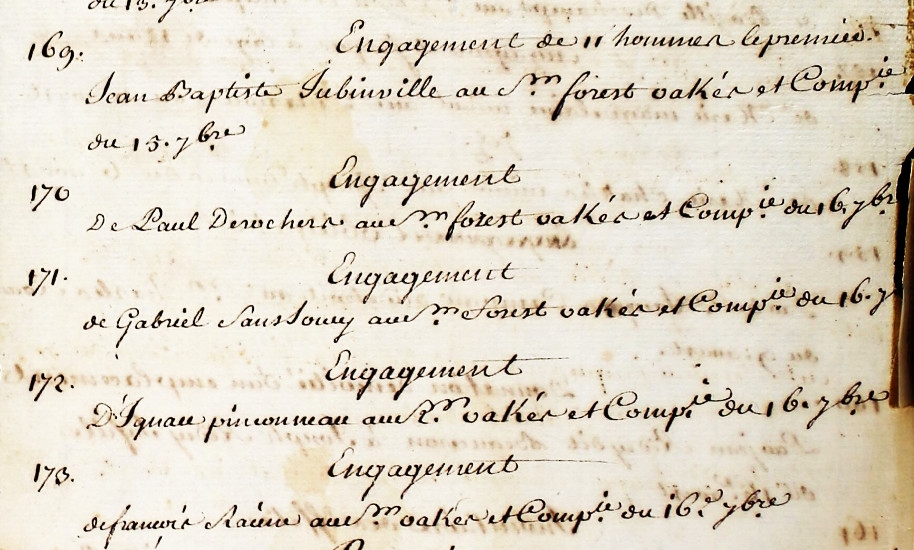 du 15. 7bre
169. Engagement de 11 hommes le premier.
Jean Baptiste Jubinville au Srs forest oakés et Compie
du 15. 7bre
170 Engagement
De Paul Derochers au Srs forest oakés et Compie du 16. 7bre
171. Engagement
de Gabriel Sanssoucy au Srs forest oakés et Compie du 16. 7
172. Engagement
D'Ignace pinconneau au Srs oakés et Compie du 16. 7bre
173. Engagement
de francois Racine au Srs oakes et Compie du 16e 7bre